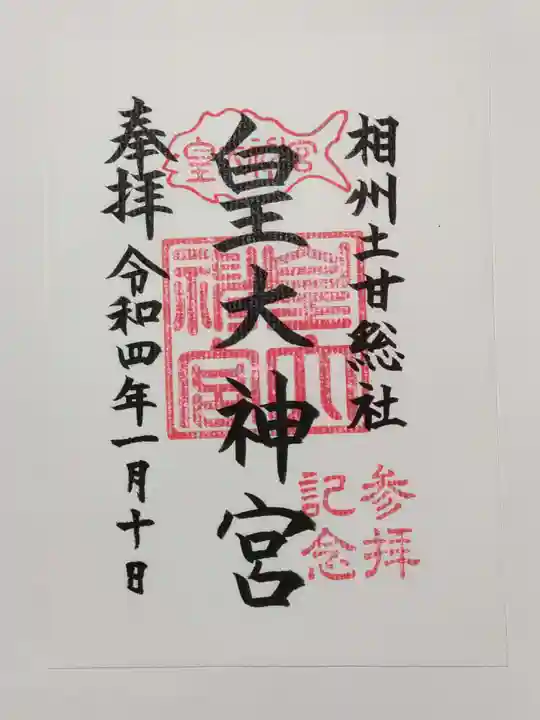 相州土甘総社
皇大神宮
奉拝
令和四年一月十日
皇大神宮
皇大神宮
参拝
記念